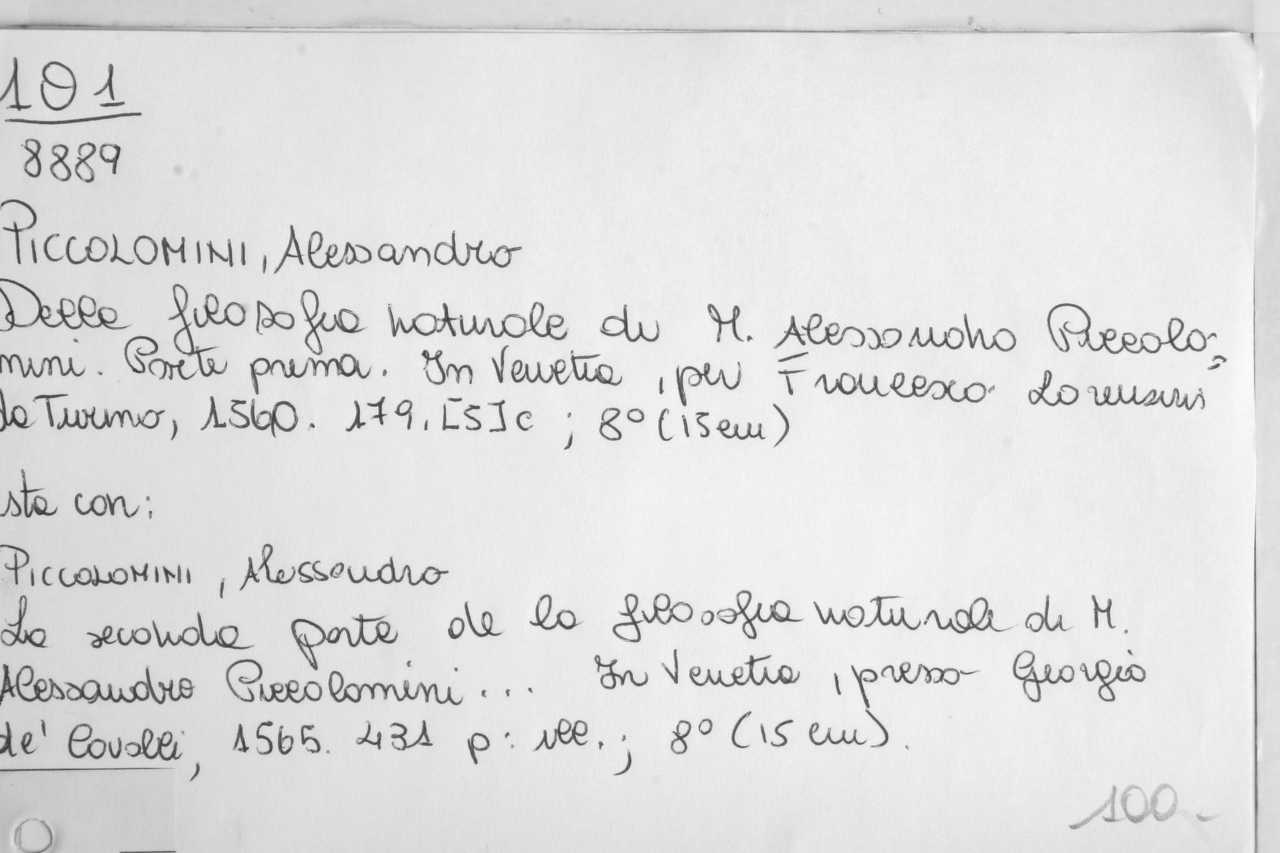 101
8889
PICCOLOMINI, Alessandro
Della filosofia naturale di M. Alessandro Piccolo=
mini. Parte prima. In Venetia, per Francesco Lorenzini
da Turino, 1560. 179, [5] c ; 8° (15 cm)
sta con:
PICCOLOMINI, Alessandro
La seconda parte de la filosofia naturale di M.
Alessandro Piccolomini... In Venetia, presso Georgio
de' Cavalli, 1565. 431 p: ill. ; 8° (15 cm).
100